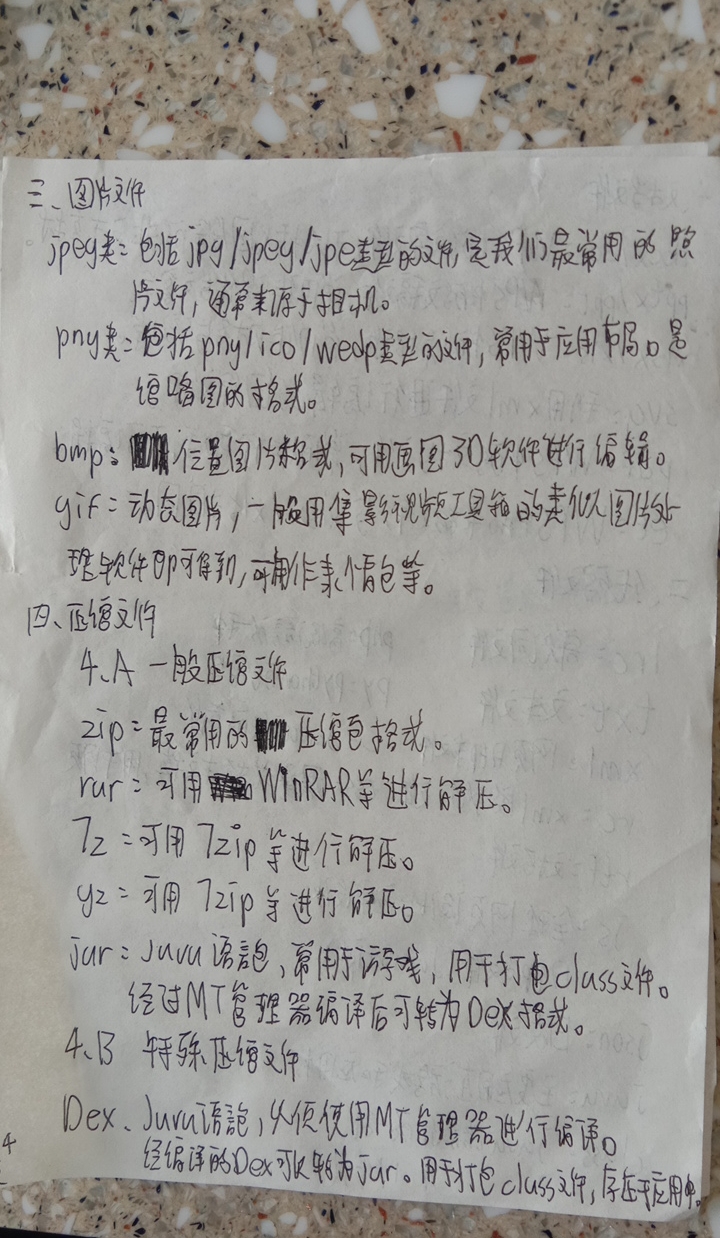 三、图片文件
jpeg类：包括jpg/jpeg/jpe类型的文件,是我们最常用的照
片文件，通常来源于相机。
png类：包括png/ico/wedp类型的文件，常用于应用布局。是
缩略图的格式。
bmp：位置图片格式，可用画图3D软件进行编辑。
gif：动态图片，一般用 影视频工具箱的类似图片处
理软件即可得到，可用作表情包等。
四、压缩文件
4.A 一般压缩文件
zip：最常用的 压缩包格式。
rar：可用 WinRAR等进行解压。
7z：可用7zip等进行解压。
gz：可用7zip等进行解压。
jar：Java语言包，常用于游戏，用于打包class文件。
经过MT管理器编译后可转为Dex格式。
4.B 特殊压缩文件
Dex、Java语言包，必须使用MT管理器进行编译。
经编译的Dex可以转为jar。用于打包class文件，存在于应用中。
4